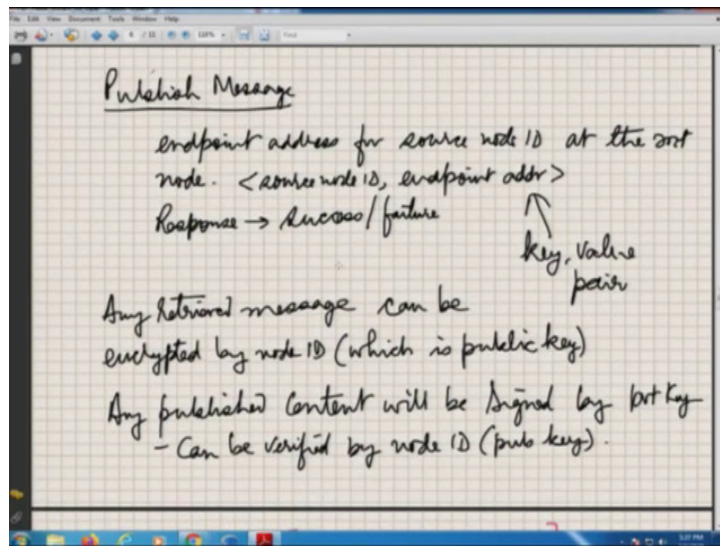 File Edit View Document Tools Window Help
6 / 11 Find
Publish Message
endpoint address for source node ID at the root
node. <source node ID, endpoint addr>
Response → success/failure
key, value
pair
Any retrieved message can be
encrypted by node ID (which is public key)
Any published content will be signed by pvt key
- Can be verified by node ID (pub key).
5:37 PM